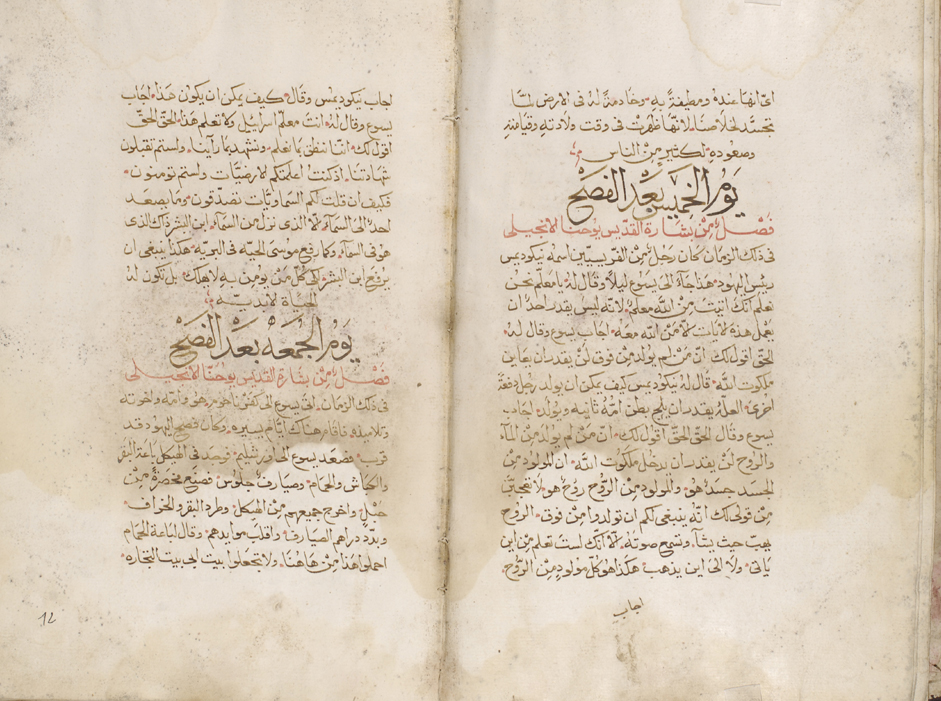 اعني انها عنده ومطيفة به وخادمة له في الارض لما
تجسد لخلاصنا لانها ظهرت في وقت ولادته وقيامته
وصعوده لكثير من الناس
يوم الخميس بعد الفصح
فصل من بشارة القديس يوحنا الانجيلي
في ذلك الزمان كان رجل من الفريسيين اسمه نيكوديمس
رييس اليهود هذا جآء الى يسوع ليلا وقال له يا معلم نحن
نعلم انك اتيت من الله معلم لانه ليس يقدر احد ان
يعمل هذه الايات الا من الله معه اجاب يسوع وقال له
الحق اقول لك ان من لم يولد من فوق لن يقدر ان يعاين
ملكوت الله قال له نيكوديمس كيف يمكن ان يولد رجل دفعة
اخرى العله يقدر ان يلج بطن امه ثانية ويولد اجاب
يسوع وقال الحق الحق اقول لك ان من لم يولد من المآء
والروح لن يقدر ان يدخل ملكوت الله ان المولود من
الجسد جسد هو والمولود من الروح روح هو لا تعجبن
من قولي لك انه ينبغي لكم ان تولدوا من فوق الروح
يهب حيث يشآ وتسمع صوته الا انك لست تعلم من اين
ياتي ولا الى اين يذهب هكذا هو كل مولود من الروح
اجاب
اجاب نيكوديمس وقال كيف يمكن ان يكون هذا اجاب
يسوع وقال له انت معلم اسراييل ولا تعلم هذا الحق الحق
اقول لك اننا ننطق بما نعلم ونشهد بما راينا ولستم تقبلون
شهادتنا اذ كنت اعلمتكم الارضيات ولستم تومنون
فكيف ان قلت لكم السماويات تصدقون وما يصعد
احد الى السمآء الا الذي نزل من السمآء ابن البشر ذلك الذي
هو في السمآء وكما رفع موسى الحية في البرية هكذا ينبغي ان
يرفع ابن البشر لكي كل من يومن به لا يهلك بل تكون له
الحياة الابدية
يوم الجمعه بعد الفصح
فصل من بشارة القديس يوحنا الانجيلي
في ذلك الزمان اتى يسوع الى كفرناحوم هو وامه واخوته
وتلاميذه فاقام هناك اياما يسيره وكان فصح اليهود قد
قرب فصعد يسوع الى اورشليم فوجد في الهيكل باعة البقر
والكباش والحمام وصيارف جلوس فصنع مخصرة من
حبل واخرج جميعهم من الهيكل وطرد البقر والخراف
وبدد دراهم الصيارف واقلب موايدهم وقال لباعة الحمام
احملوا هذا من هاهنا ولا تجعلوا بيت ابي بيت التجاره
12